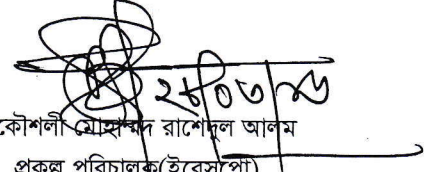 ২৮/০৩/২৬
কৌশলী মোহাম্মদ রাশেদুল আলম
প্রকল্প পরিচালক(ইরেসপো)